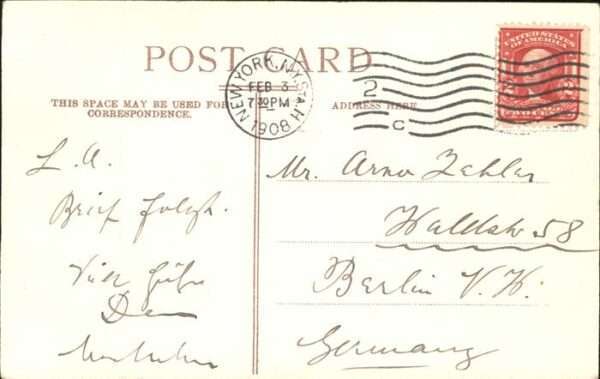 POST CARD
THIS SPACE MAY BE USED FOR
CORRESPONDENCE.
ADDRESS HERE
NEW YORK, N.Y. STA. H
FEB 3
7 30 PM
1908
2
C
UNITED STATES
OF AMERICA
L. A.
Brief folgt.
Viele Grüße
Mr. Arno
Waldstr 58
Berlin N. W.
Germany